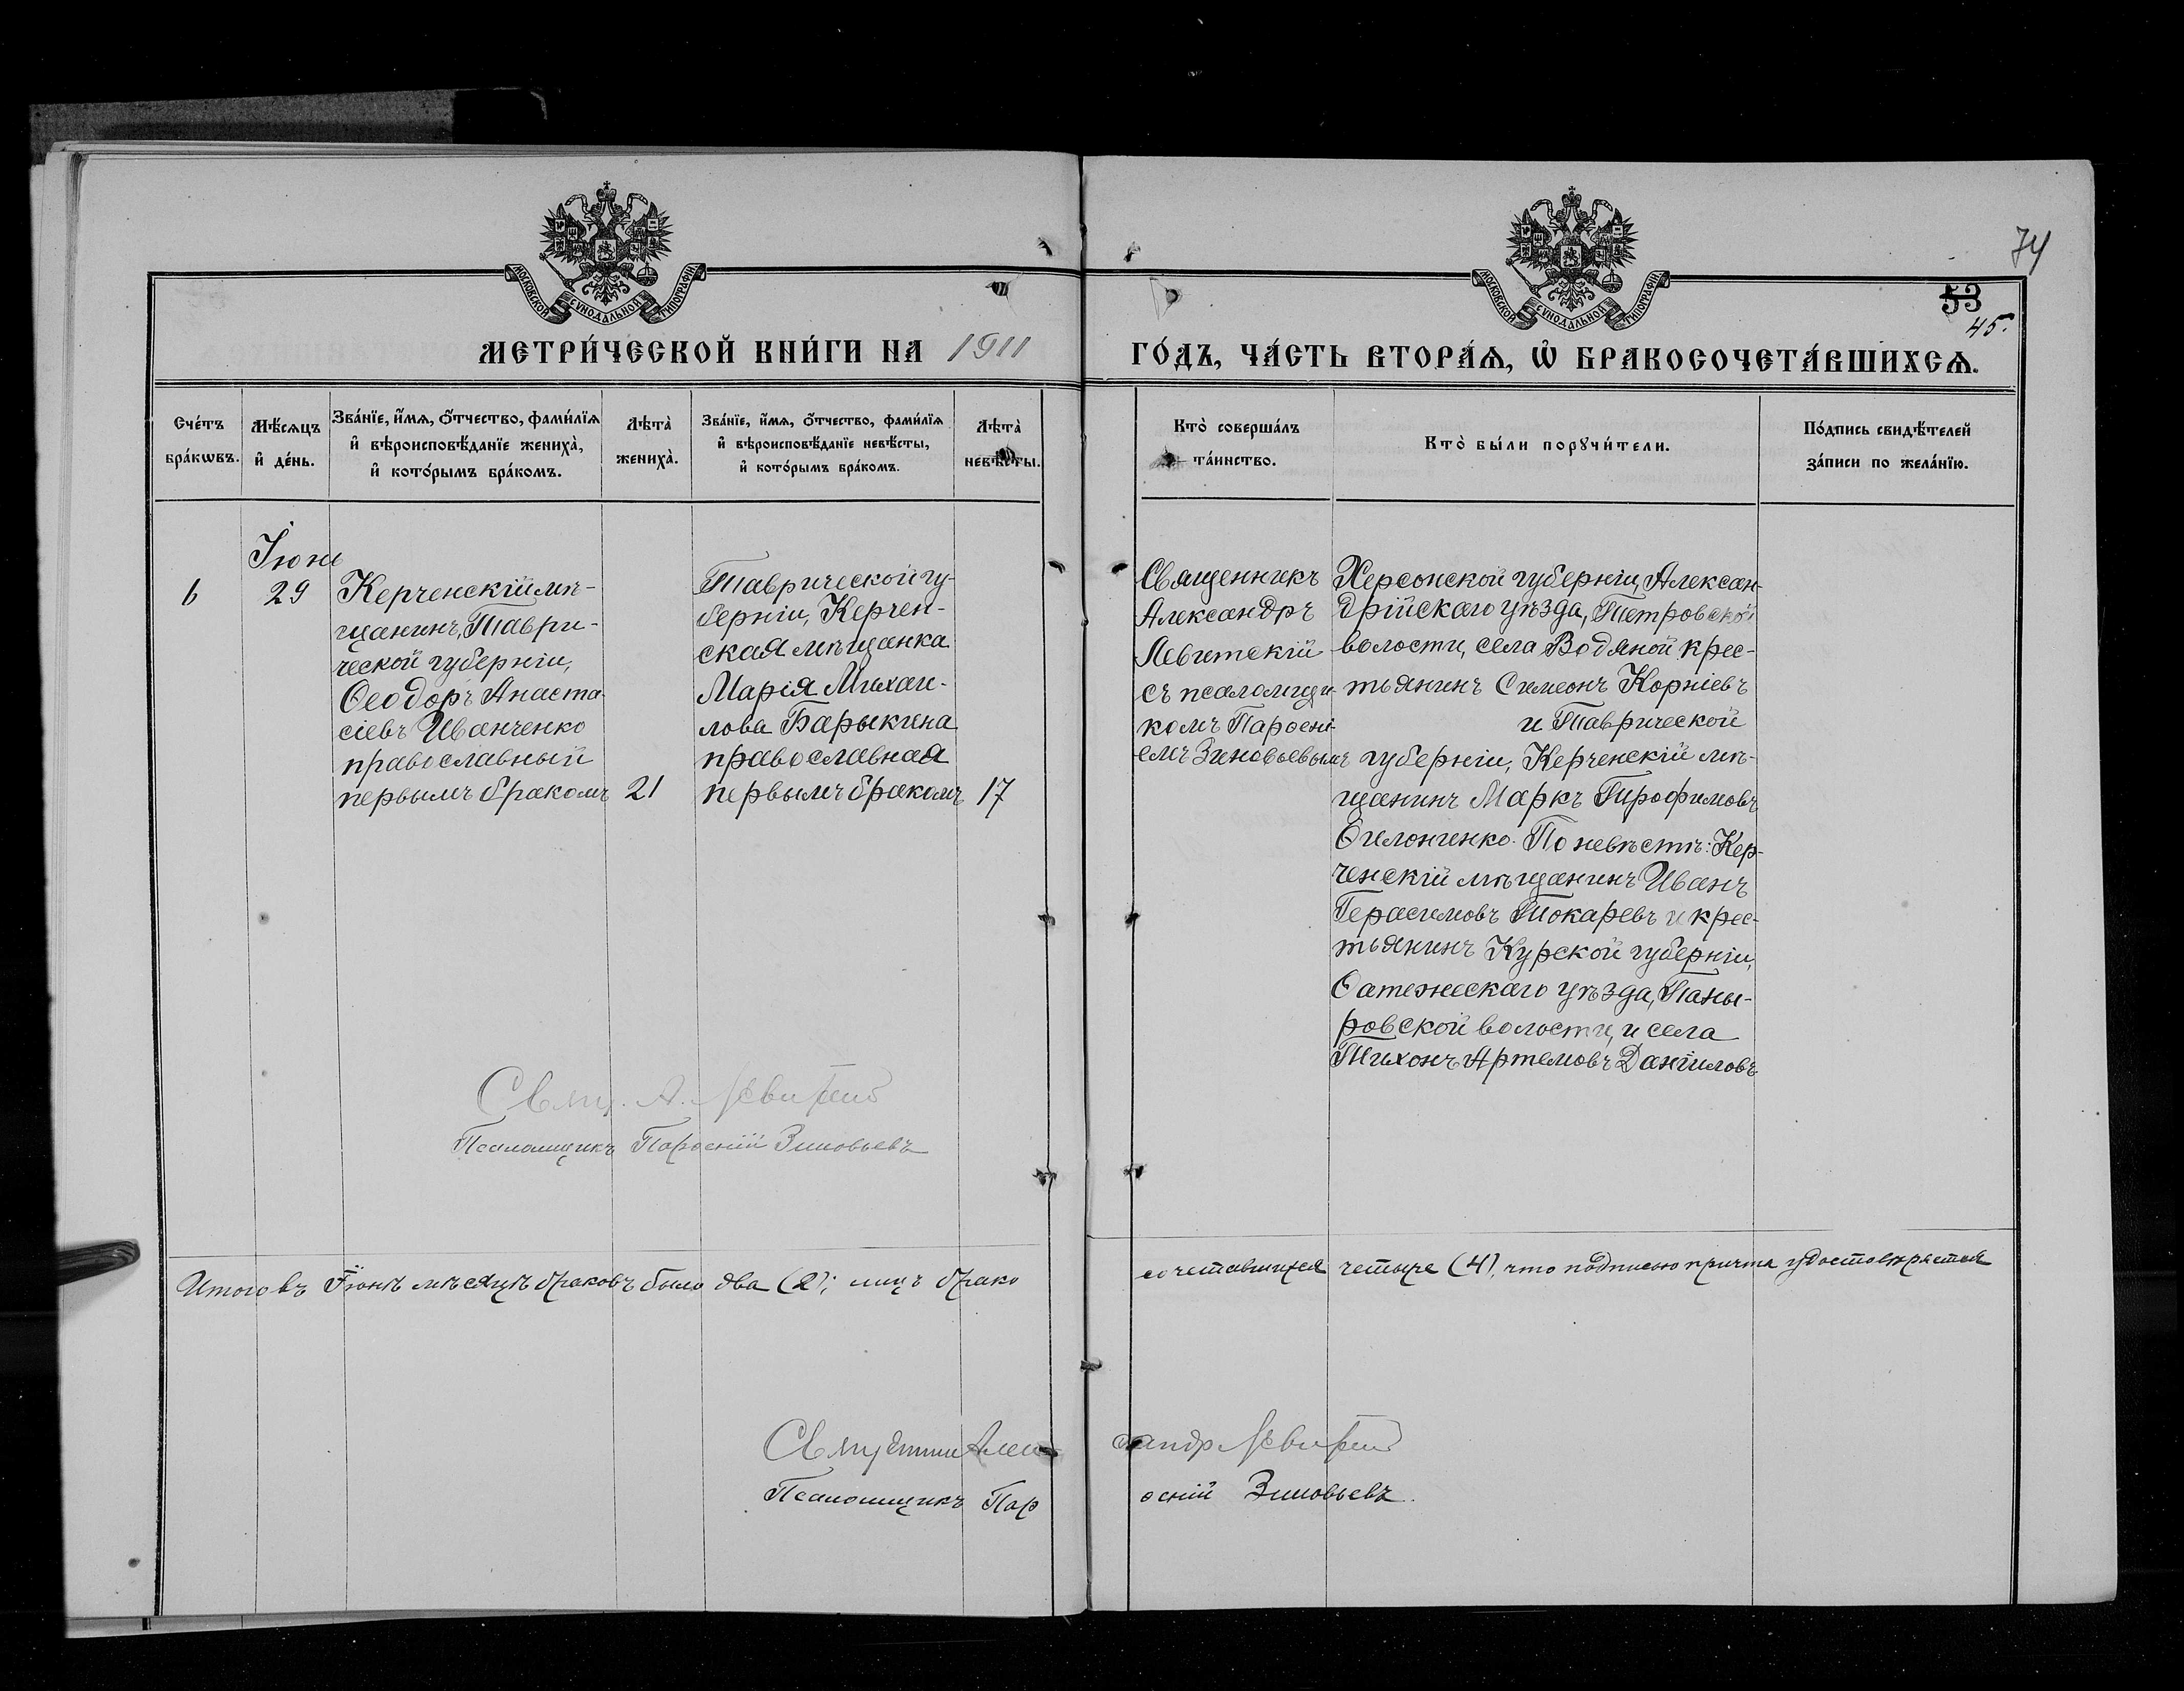 74
53
45.
МОСКОВСКОЙ СѴНОДАЛЬНОЙ ТИПОГРАФІИ
МОСКОВСКОЙ СѴНОДАЛЬНОЙ ТИПОГРАФІИ
МЕТРИ́ЧЕСКОЙ КНИ́ГИ НА 1911 ГО́ДЪ, ЧА́СТЬ ВТОРА́Ѧ, Ѡ҆ БРАКОСОЧЕТА́ВШИХСѦ.
Сче́тъ бра́кѡвъ.
Мѣ́сѧцъ и҆ де́нь.
Зва́нїе, и҆́мѧ, ѻ҆́тчество, фами́лїѧ
и҆ вѣроисповѣ́данїе жениха̀,
и҆ кото́рымъ бра́комъ.
Лѣта̀ жениха̀.
Зва́нїе, и҆́мѧ, ѻ҆́тчество, фами́лїѧ
и҆ вѣроисповѣ́данїе невѣ́сты,
и҆ кото́рымъ бра́комъ.
Лѣта̀ невѣ́сты.
Кто̀ соверша́лъ та́инство.
Кто̀ бы́ли порꙋчи́тели.
По́дпись свидѣ́телей
за́писи по жела́нїю.
6
Іюнь
29
Керченскій мѣ-
щанинъ, Таври-
ческой губерніи,
Ѳеодоръ Анаста-
сіевъ Иванченко
православный
первымъ бракомъ
21
Таврической гу-
берніи, Керчен-
ская мѣщанка
Марія Михаи-
лова Барыкина
православная
первымъ бракомъ
17
Священникъ
Александръ
Левитскій
съ псаломщи-
комъ Парѳені-
емъ Зиновьевымъ
Херсонской губерніи, Алексан-
дрійскаго уѣзда, Петровской
волости, села Водяной крес-
тьянинъ Симеонъ Корніевъ
и Таврической
губерніи, Керченскій мѣ-
щанинъ Маркъ Трофимовъ
По невѣстѣ: Кер-
ченскій мѣщанинъ Иванъ
Герасимовъ Токаревъ и крес-
тьянинъ Курской губерніи,
Ѳатежскаго уѣзда,
ровской волости, и села
Тихонъ Артемовъ Даніиловъ
Свящ. А. Левитскій
Псаломщикъ Парѳеній Зиновьевъ
Итого въ Іюнѣ мѣсяцѣ браковъ было два (2); лицъ брако
сочетавшихся четыре (4), что подписью причта удостовѣряется
Священникъ Александръ Левитскій
Псаломщикъ Парѳеній Зиновьевъ.